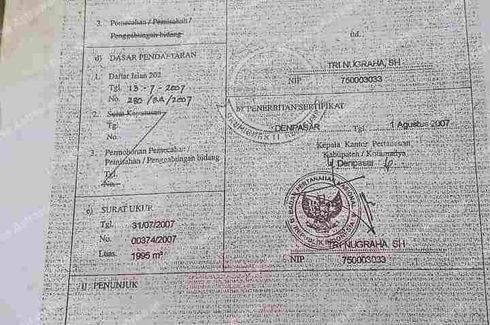 3. Pemecahan / Pemisahan /
Penggabungan bidang
d) DASAR PENDAFTARAN
1. Daftar Isian 202
Tgl. 13 - 7 - 2007
No. 280/BA/2007
2. Surat Keputusan
Tgl.
No.
3. Permohonan Pemecahan /
Pemisahan / Penggabungan bidang
Tgl.
No.
e) SURAT UKUR
Tgl. 31/07/2007
No. 00374/2007
Luas. 1995 m²
f) PENUNJUK
ttd.
TRI NUGRAHA, SH
NIP 750003033
h) PENERBITAN SERTIFIKAT
DENPASAR Tgl. 1 Agustus 2007
Kepala Kantor Pertanahan
Kabupaten / Kotamadya
Denpasar
BADAN PERTANAHAN NASIONAL
TRI NUGRAHA, SH
NIP 750003033